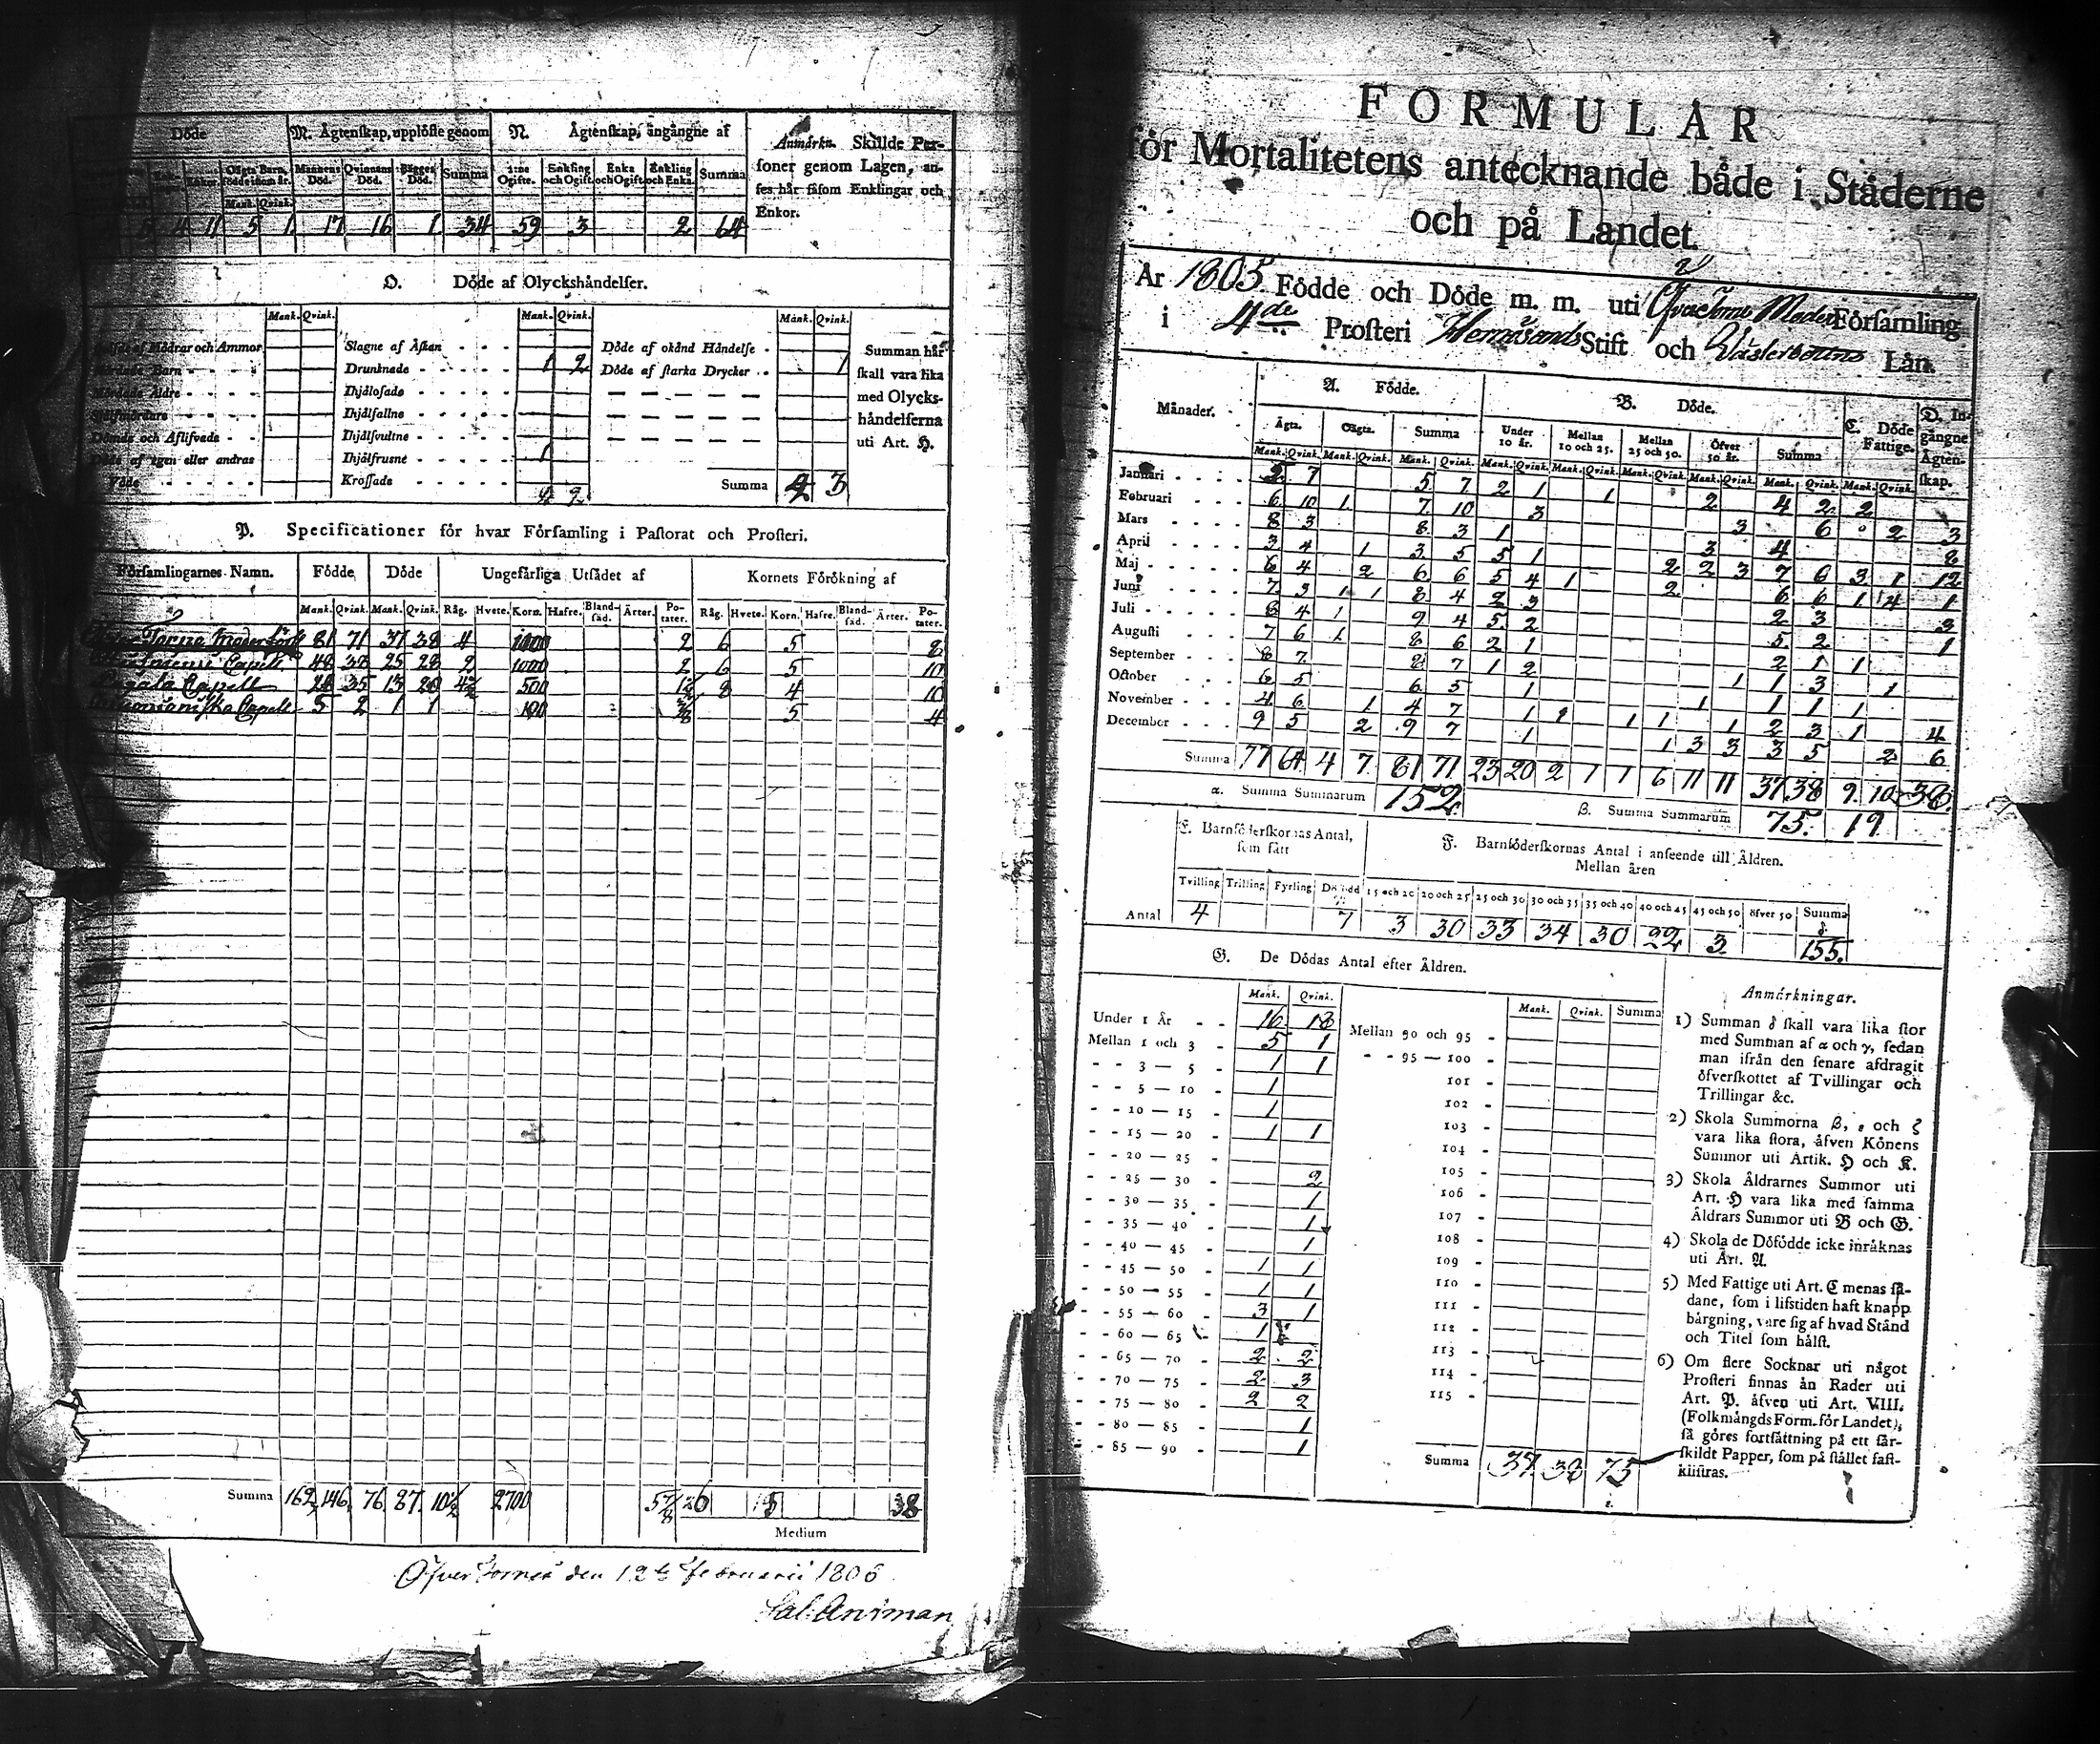 Döde
M. Ågtenskap, upplöste genom
N. Ågtenskap, ångångne af
Anmårkn. Skillde Per-
soner genom Lagen, an-
ses hår såsom Enklingar och
Enkor.
Enkor. Oågta Barn, födde inom år. Mannens Död. Qvinnans Död. Bågges Död. Summa
Ogifte. Enkling och Ogift. Enka och Ogift. Enkling och Enka. Summa
Mank. Qvink.
11 5 1 17 16 1 34 59 3 2 64
O. Döde af Olyckshåndelser.
Mank. Qvink. Mank. Qvink. Mank. Qvink.
Mödrar och Ammor
Slagne af Åskan
Döde af okånd Håndelse
Summan hår
Barn
Drunknade 1 2
Döde af starka Drycker 1
skall vara lika
Åldre
Ihjålosade
med Olycks-
Ihjålfallne
håndelserna
Dömde och Aflifvade
Ihjålsvultne
uti Art. H.
Döde af egen eller andras
Ihjålfrusne 1
Våde
Krossade
Summa 2 3
P. Specificationer för hvar Församling i Pastorat och Prosteri.
Församlingarnes Namn. Födde Döde Ungefårliga Utsådet af Kornets Förökning af
Mank. Qvink. Mank. Qvink. Råg. Hvete. Korn. Hafre. Bland-såd. Årter. Po-tater. Råg. Hvete. Korn. Hafre. Bland-såd. Årter. Po-tater.
81 71 37 38 4 1000 2 6 5 8
Capell 25 28 2 1000 2 6 5 10
Capell 28 35 13 20 4½ 500 8 4 10
Capell 5 2 1 1 5 4
Summa 162 146 76 87 10½ 2700 5⅞ 26 38
Medium
Öfver Torneå den 12te Februarii 1806
FORMULAR
för Mortalitetens antecknande både i Ståderne
och på Landet.
År 1805. Födde och Döde m. m. uti Församling
i 4de Prosteri Hernösands Stift och Våsterbottns Lån.
Månader.
A. Födde.
B. Döde.
C. Döde Fattige.
D. In-gångne Ågten-skap.
Ågta. Oågta. Summa Under 10 år. Mellan 10 och 25. Mellan 25 och 50. Öfver 50 år. Summa
Mank. Qvink. Mank. Qvink. Mank. Qvink. Mank. Qvink. Mank. Qvink. Mank. Qvink. Mank. Qvink. Mank. Qvink. Mank. Qvink.
Januari 5 7 5 7 2 1 1 2 4 2 2
Februari 6 10 1 7 10 3 3 6 2 3
Mars 8 3 8 3 1 3 4 8
April 3 4 1 3 5 5 1 2 2 3 7 6 3 1 12
Maj 6 4 2 6 6 5 4 1 2 6 6 1 4 1
Juni 7 3 1 1 8 4 2 3 2 3 3
Juli 8 4 1 9 4 5 2 5 2 1
Augusti 7 6 1 8 6 2 1 2 1 1
September 8 7 8 7 1 2 1 1 3 1
October 6 5 6 5 1 1 1 1 1
November 4 6 1 4 7 1 1 1 1 2 3 1 4
December 9 5 2 9 7 1 1 3 3 3 5 2 6
Summa 77 64 4 7 81 71 23 20 2 1 1 6 11 11 37 38 9 10 38
α. Summa Summarum 152
β. Summa Summarum 75. 19
E. Barnföderskornas Antal,
som fått
F. Barnföderskornas Antal i anseende till Åldren.
Mellan åren
Tvilling Trilling Fyrling Dödfödd 15 och 20 20 och 25 25 och 30 30 och 35 35 och 40 40 och 45 45 och 50 öfver 50 Summa
Antal 4 7 3 30 33 34 30 22 3 155.
G. De Dödas Antal efter Åldren.
Mank. Qvink. Mank. Qvink. Summa
Under 1 År 16 18
Mellan 1 och 3 5 1
3 — 5 1 1
5 — 10 1
10 — 15 1
15 — 20 1 1
20 — 25
25 — 30 2
30 — 35 1
35 — 40 1
40 — 45 1
45 — 50 1 1
50 — 55 1 1
55 — 60 3 1
60 — 65 1
65 — 70 2 2
70 — 75 2 3
75 — 80 2 2
80 — 85 1
85 — 90 1
Mellan 90 och 95
95 — 100
101
102
103
104
105
106
107
108
109
110
111
112
113
114
115
Summa 37 38 75
Anmårkningar.
1) Summan δ skall vara lika stor
med Summan af α och γ, sedan
man ifrån den senare afdragit
öfverskottet af Tvillingar och
Trillingar &c.
2) Skola Summorna β, ε och ζ
vara lika stora, åfven Könens
Summor uti Artik. H och K.
3) Skola Åldrarnes Summor uti
Art. H vara lika med samma
Åldrars Summor uti B och G.
4) Skola de Döfödde icke inråknas
uti Art. A.
5) Med Fattige uti Art. C menas så-
dane, som i lifstiden haft knapp
bårgning, vare sig af hvad Stånd
och Titel som hålst.
6) Om flere Socknar uti något
Prosteri finnas ån Rader uti
Art. P. åfven uti Art. VIII.
(Folkmångds Form. för Landet),
så göres fortsåttning på ett sår-
skildt Papper, som på stållet fast-
klistras.